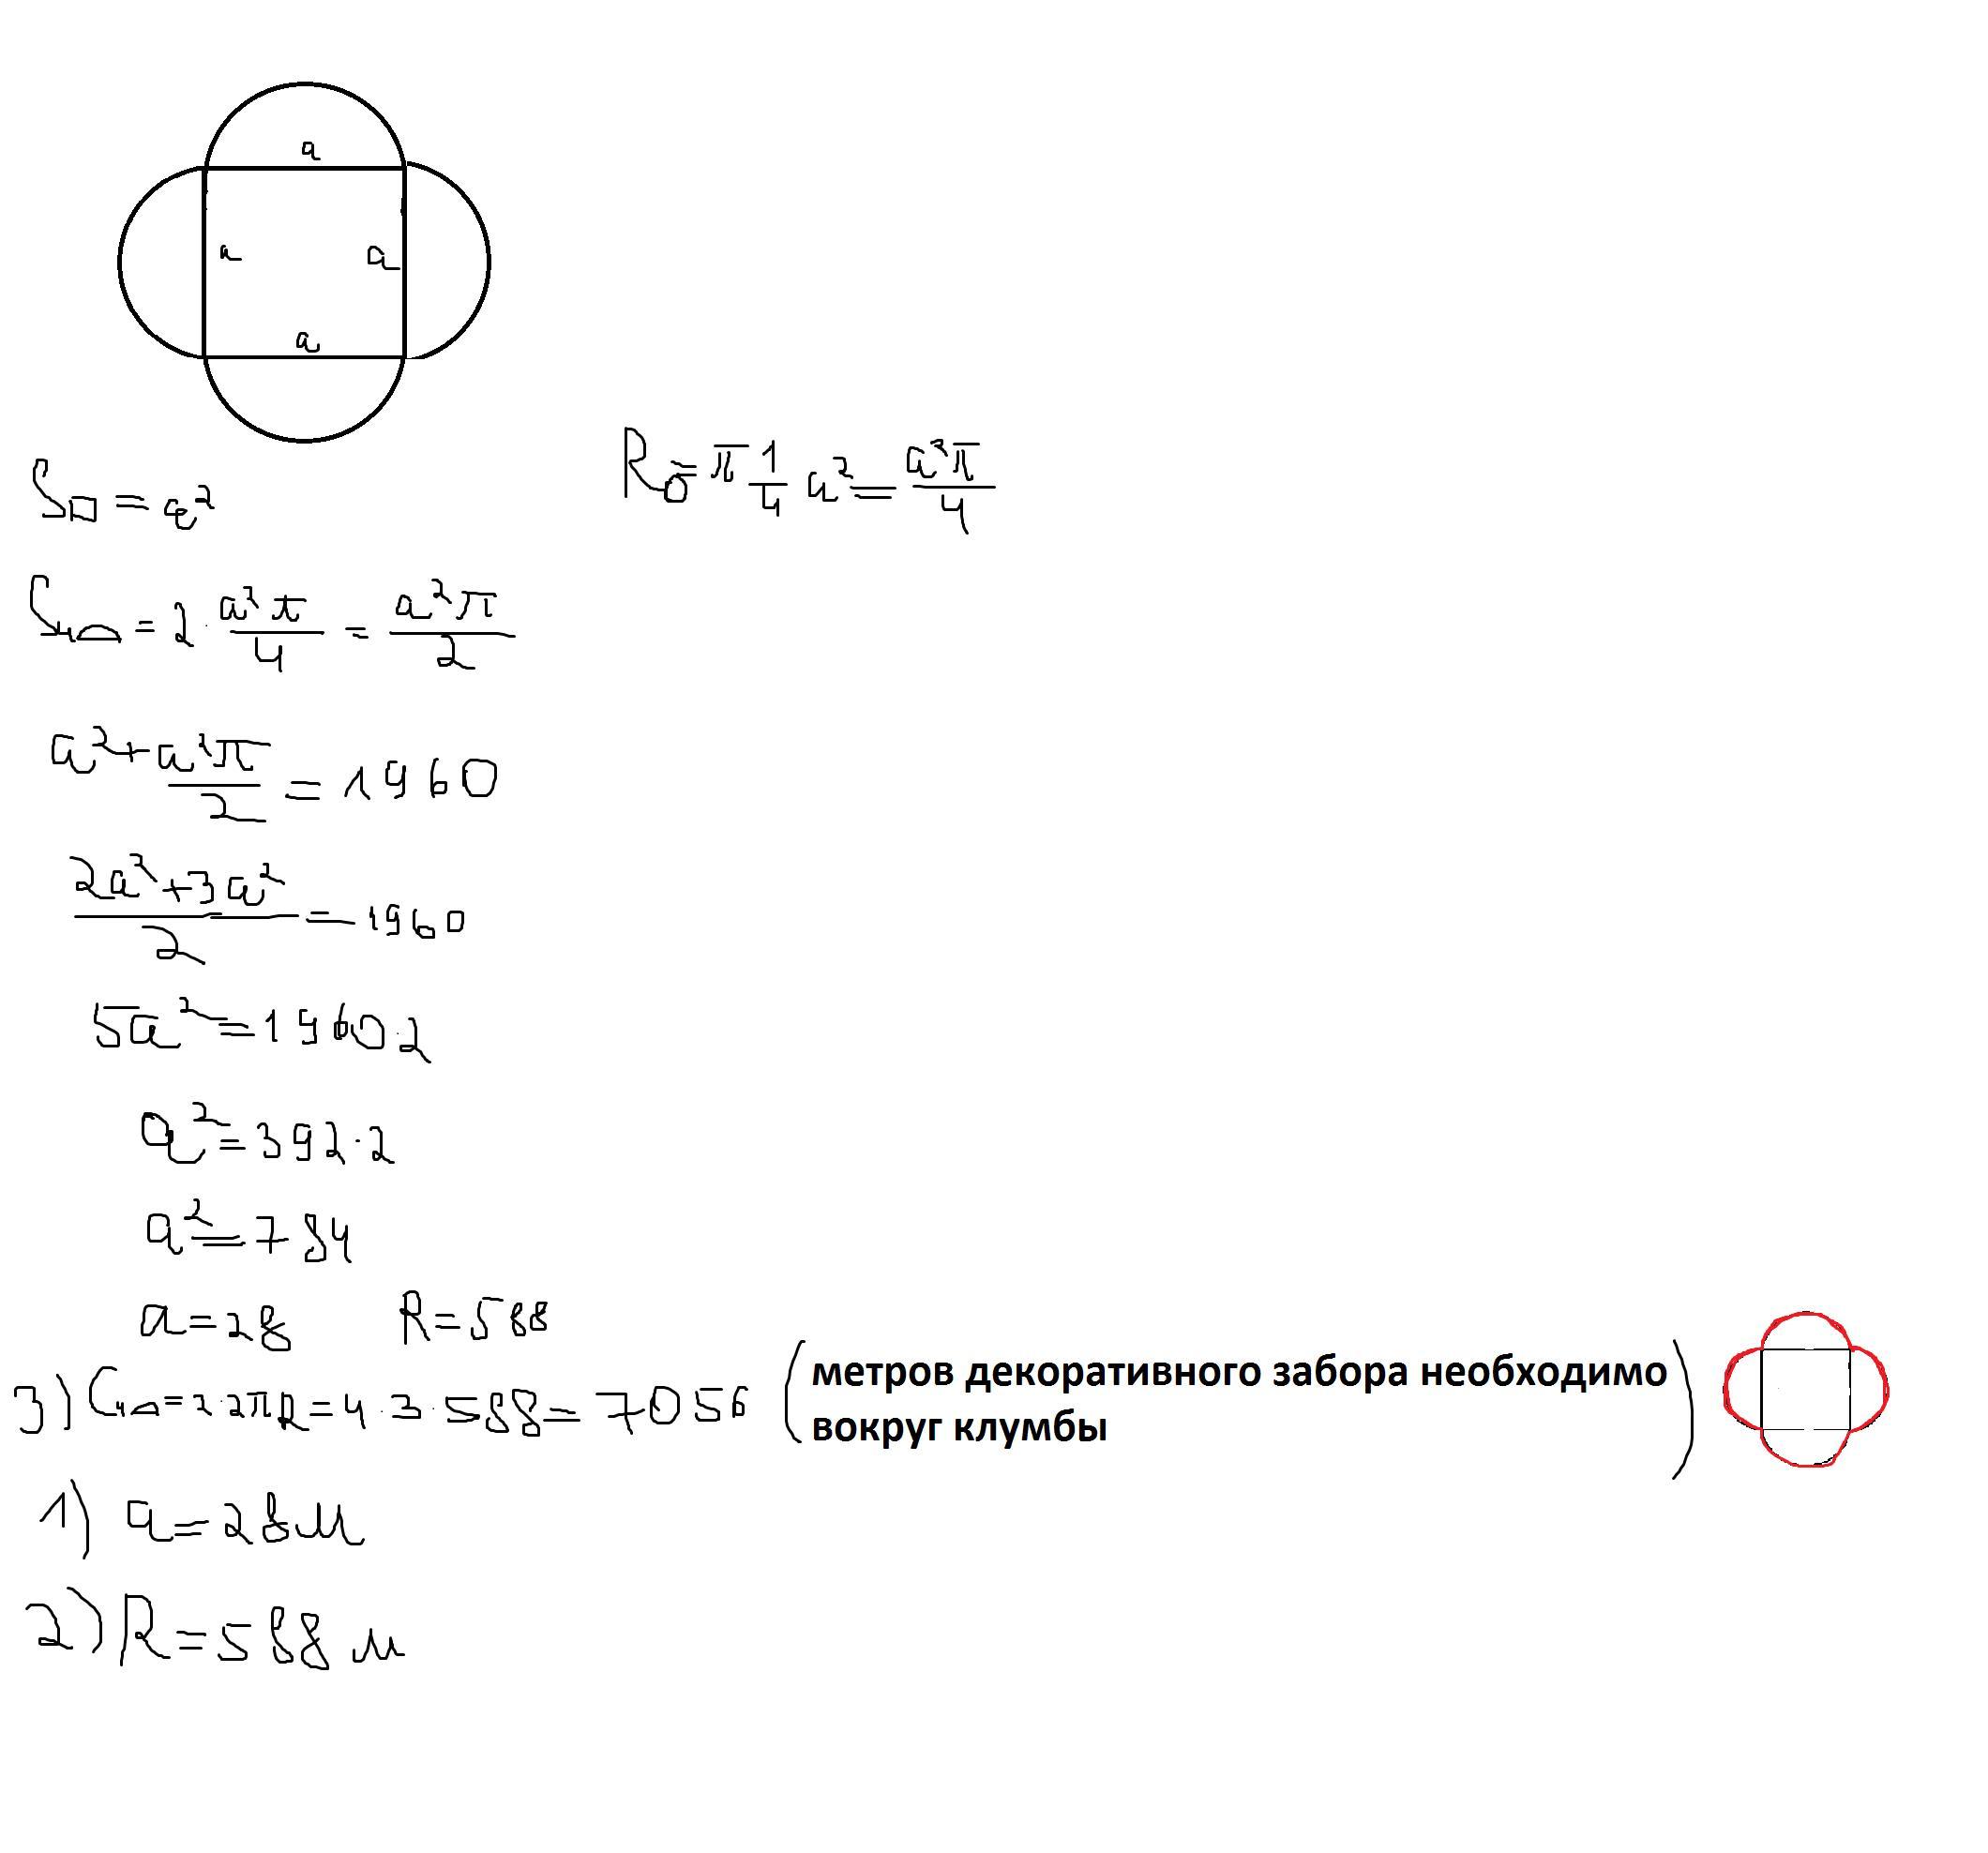 a
a
a
a
S□ = a²
R○ = π 1/4 a² = a²π/4
S₄⌓ = 2 · a²π/4 = a²π/2
a² + a²π/2 = 1960
(2a² + 3a²)/2 = 1960
5a² = 1960 · 2
a² = 392 · 2
a² = 784
a = 28 R = 588
3) C₄⌓ = 2 · 2πR = 4 · 3 · 588 = 7056 (метров декоративного забора необходимо
вокруг клумбы)
1) a = 28 м
2) R = 588 м